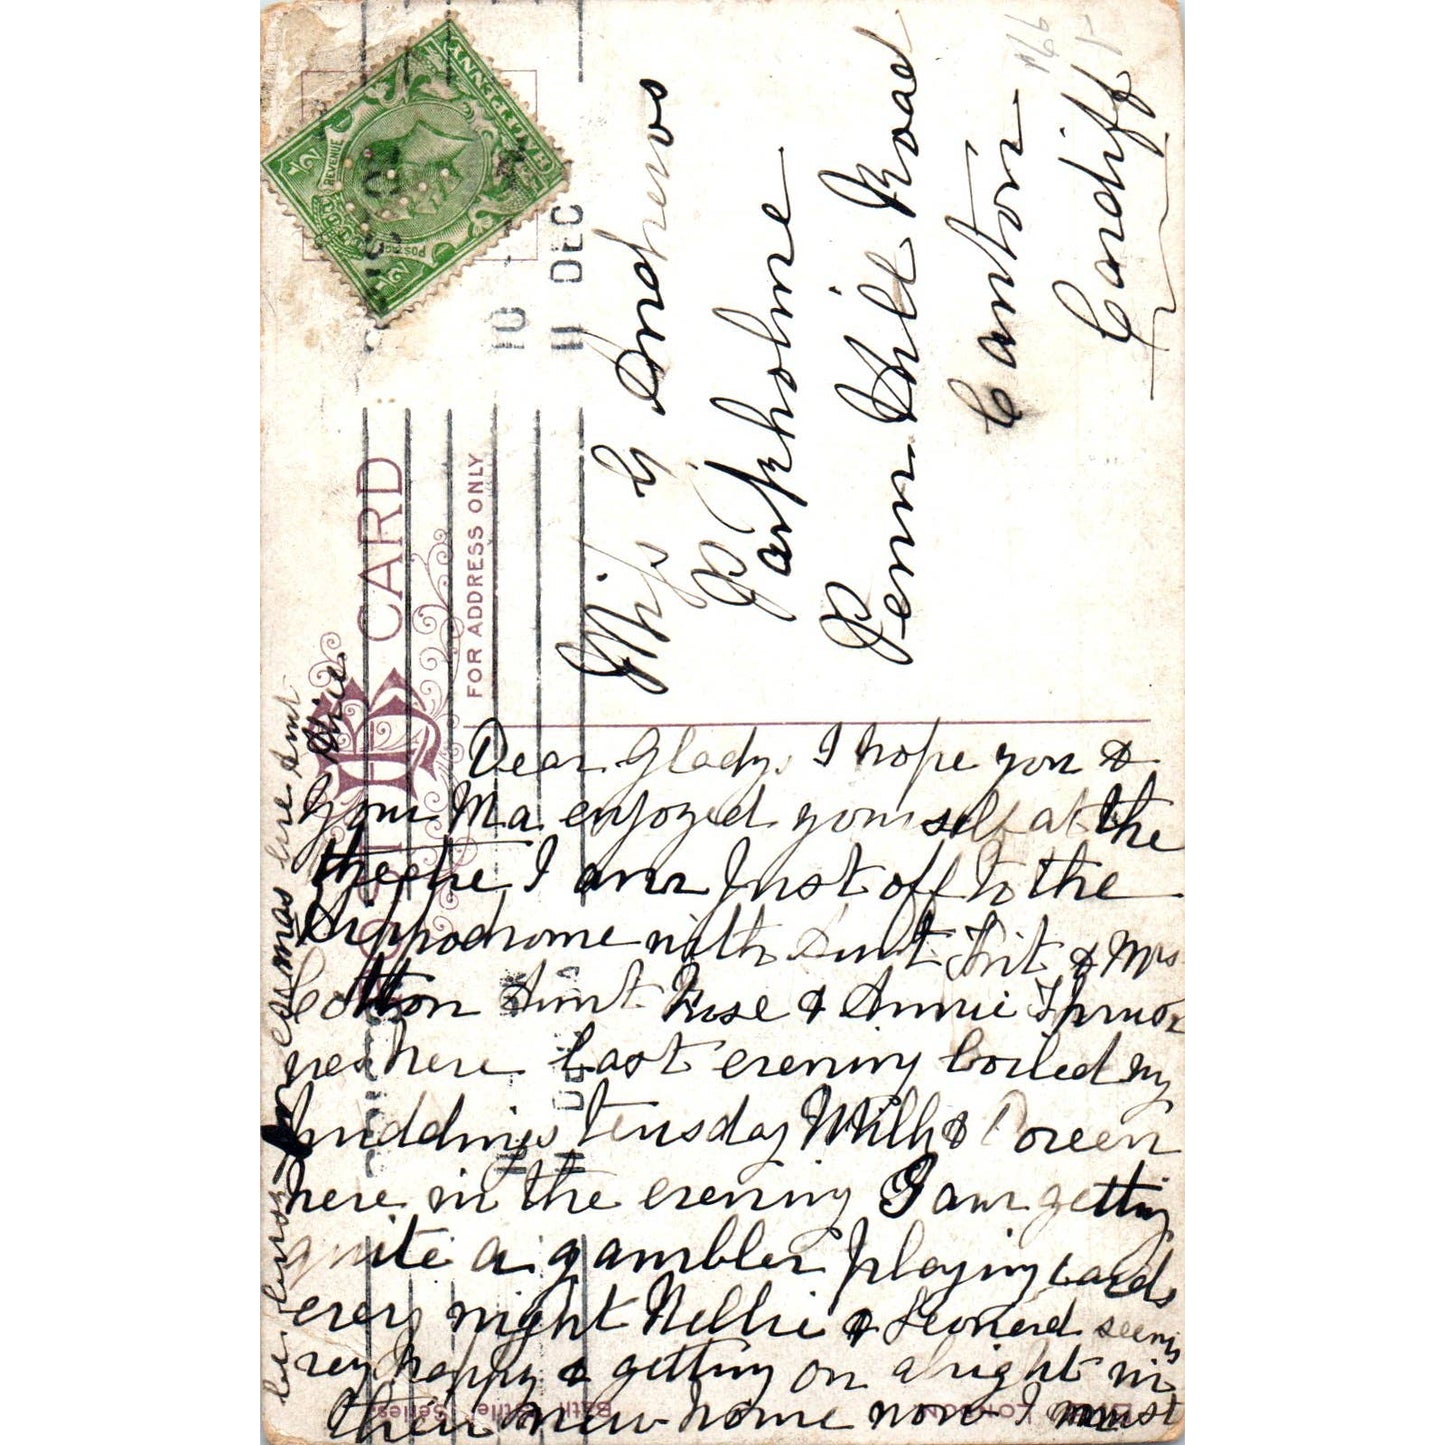 POST CARD
FOR ADDRESS ONLY
HALFPENNY
POSTAGE
REVENUE
1/2
1/2
11 DEC
10
Miss G Andrews
Parkholme
Penn Hill Road
Canton
Cardiff
Dear Glady, I hope you &
your Ma enjoyed yourself at the
theatre I am Just off to the
Hippodrome with Aunt & Mrs
Cotton Aunt Rose & Annie
were here last evening boiled my
puddings teusday Will & Doreen
here in the evening I am getting
quite a gambler playing cards
every night Nellie & Leonard seems
very happy & getting on alright in
their new home now I must
Xmas here Aunt
Bath
Series
LONDON